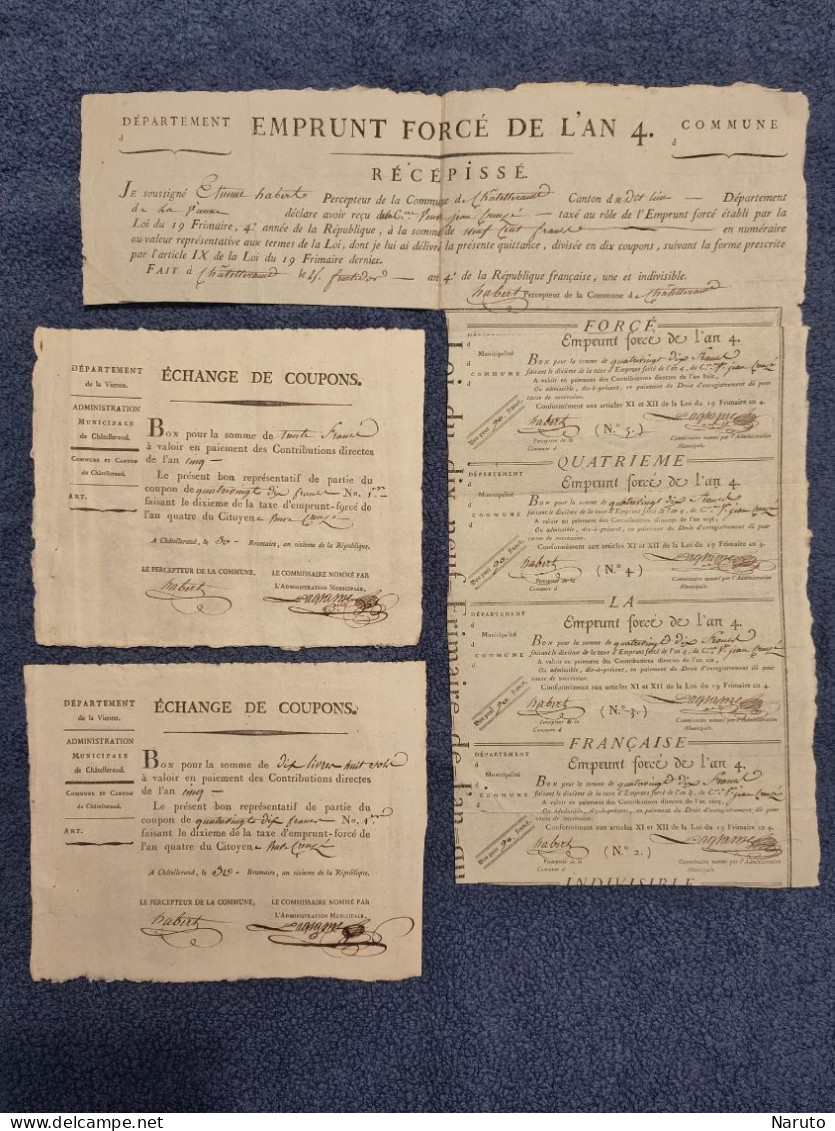 DÉPARTEMENT
d
EMPRUNT FORCÉ DE L'AN 4.
COMMUNE
d
RÉCÉPISSÉ.
JE soussigné Etienne habert Percepteur de la Commune de Chatellerauud Canton du dit lieu Département
de La Vienne déclare avoir reçu taxé au rôle de l'Emprunt forcé établi par la
Loi du 19 Frimaire, 4.e année de la République, à la somme de Neuf Cent francs en numéraire
ou valeur représentative aux termes de la Loi, dont je lui ai délivré la présente quittance, divisée en dix coupons, suivant la forme prescrite
par l'article IX de la Loi du 19 Frimaire dernier.
FAIT à Chatelleraud le 25 fructidor an 4.e de la République française, une et indivisible.
habert Percepteur de la Commune de Chatelleraud
FORCÉ
d
Municipalité
d
COMMUNE
d
Emprunt forcé de l'an 4.
BON pour la somme de quatrevingt dix francs
faisant le dixième de la taxe d'Emprunt forcé de l'an 4, du C.en jean Creuzé
A valoir en paiement des Contributions directes de l'an huit,
Ou admissible, dès-à-présent, en paiement du Droit d'enregistrement dû pour
cause de succession.
Conformément aux articles XI et XII de la Loi du 19 Frimaire an 4.
Bon pour 90 franc.
habert
(N.o 5.)
Lagrange
Percepteur de la
Commune d
Commissaire nommé par l'Administration
Municipale.
QUATRIEME
DÉPARTEMENT
d
Municipalité
d
COMMUNE
d
Emprunt forcé de l'an 4.
BON pour la somme de quatrevingt dix francs
faisant le dixième de la taxe d'Emprunt forcé de l'an 4, du C.en jean Creuzé
A valoir en paiement des Contributions directes de l'an sept,
Ou admissible, dès-à-présent, en paiement du Droit d'enregistrement dû pour
cause de succession.
Conformément aux articles XI et XII de la Loi du 19 Frimaire an 4.
Bon pour 90 franc.
habert
(N.o 4.)
Lagrange
Percepteur de la
Commune d
Commissaire nommé par l'Administration
Municipale.
LA
d
Municipalité
d
COMMUNE
d
Emprunt forcé de l'an 4.
BON pour la somme de quatrevingt dix francs
faisant le dixième de la taxe d'Emprunt forcé de l'an 4, du C.en jean Creuzé
A valoir en paiement des Contributions directes de l'an
Ou admissible, dès-à-présent, en paiement du Droit d'enregistrement dû pour
cause de succession.
Conformément aux articles XI et XII de la Loi du 19 Frimaire an 4.
Bon pour 90 franc.
habert
(N.o 3.)
Lagrange
Percepteur de la
Commune d
Commissaire nommé par l'Administration
Municipale.
FRANÇAISE
DÉPARTEMENT
d
Municipalité
d
COMMUNE
d
Emprunt forcé de l'an 4.
BON pour la somme de quatrevingt dix francs
faisant le dixième de la taxe d'Emprunt forcé de l'an 4, du C.en jean Creuzé
A valoir en paiement des Contributions directes de l'an cinq,
Ou admissible, dès-à-présent, en paiement du Droit d'enregistrement dû pour
cause de succession.
Conformément aux articles XI et XII de la Loi du 19 Frimaire an 4.
Bon pour 90 franc.
habert
(N.o 2.)
Lagrange
Percepteur de la
Commune d
Commissaire nommé par l'Administration
Municipale.
INDIVISIBLE
Loi du dix neuf Frimaire de l'an
DÉPARTEMENT
de la Vienne.
ADMINISTRATION
MUNICIPALE
de Châtelleraud.
COMMUNE ET CANTON
de Châtelleraud.
ART.
ÉCHANGE DE COUPONS.
BON pour la somme de trente francs
à valoir en paiement des Contributions directes
de l'an cinq
Le présent bon représentatif de partie du
coupon de quatrevingt dix francs No. 1.er
faisant le dixieme de la taxe d'emprunt-forcé de
l'an quatre du Citoyen Creuzé
A Châtelleraud, le Brumaire, an sixieme de la République.
LE PERCEPTEUR DE LA COMMUNE,
LE COMMISSAIRE NOMMÉ PAR
L'ADMINISTRATION MUNICIPALE,
habert
Lagrange
DÉPARTEMENT
de la Vienne.
ADMINISTRATION
MUNICIPALE
de Châtelleraud.
COMMUNE ET CANTON
de Châtelleraud.
ART.
ÉCHANGE DE COUPONS.
BON pour la somme de dix livres huit sols
à valoir en paiement des Contributions directes
de l'an cinq
Le présent bon représentatif de partie du
coupon de quatrevingt dix francs No. 1.er
faisant le dixieme de la taxe d'emprunt-forcé de
l'an quatre du Citoyen Creuzé
A Châtelleraud, le Brumaire, an sixieme de la République.
LE PERCEPTEUR DE LA COMMUNE,
LE COMMISSAIRE NOMMÉ PAR
L'ADMINISTRATION MUNICIPALE,
habert
Lagrange
Naruto